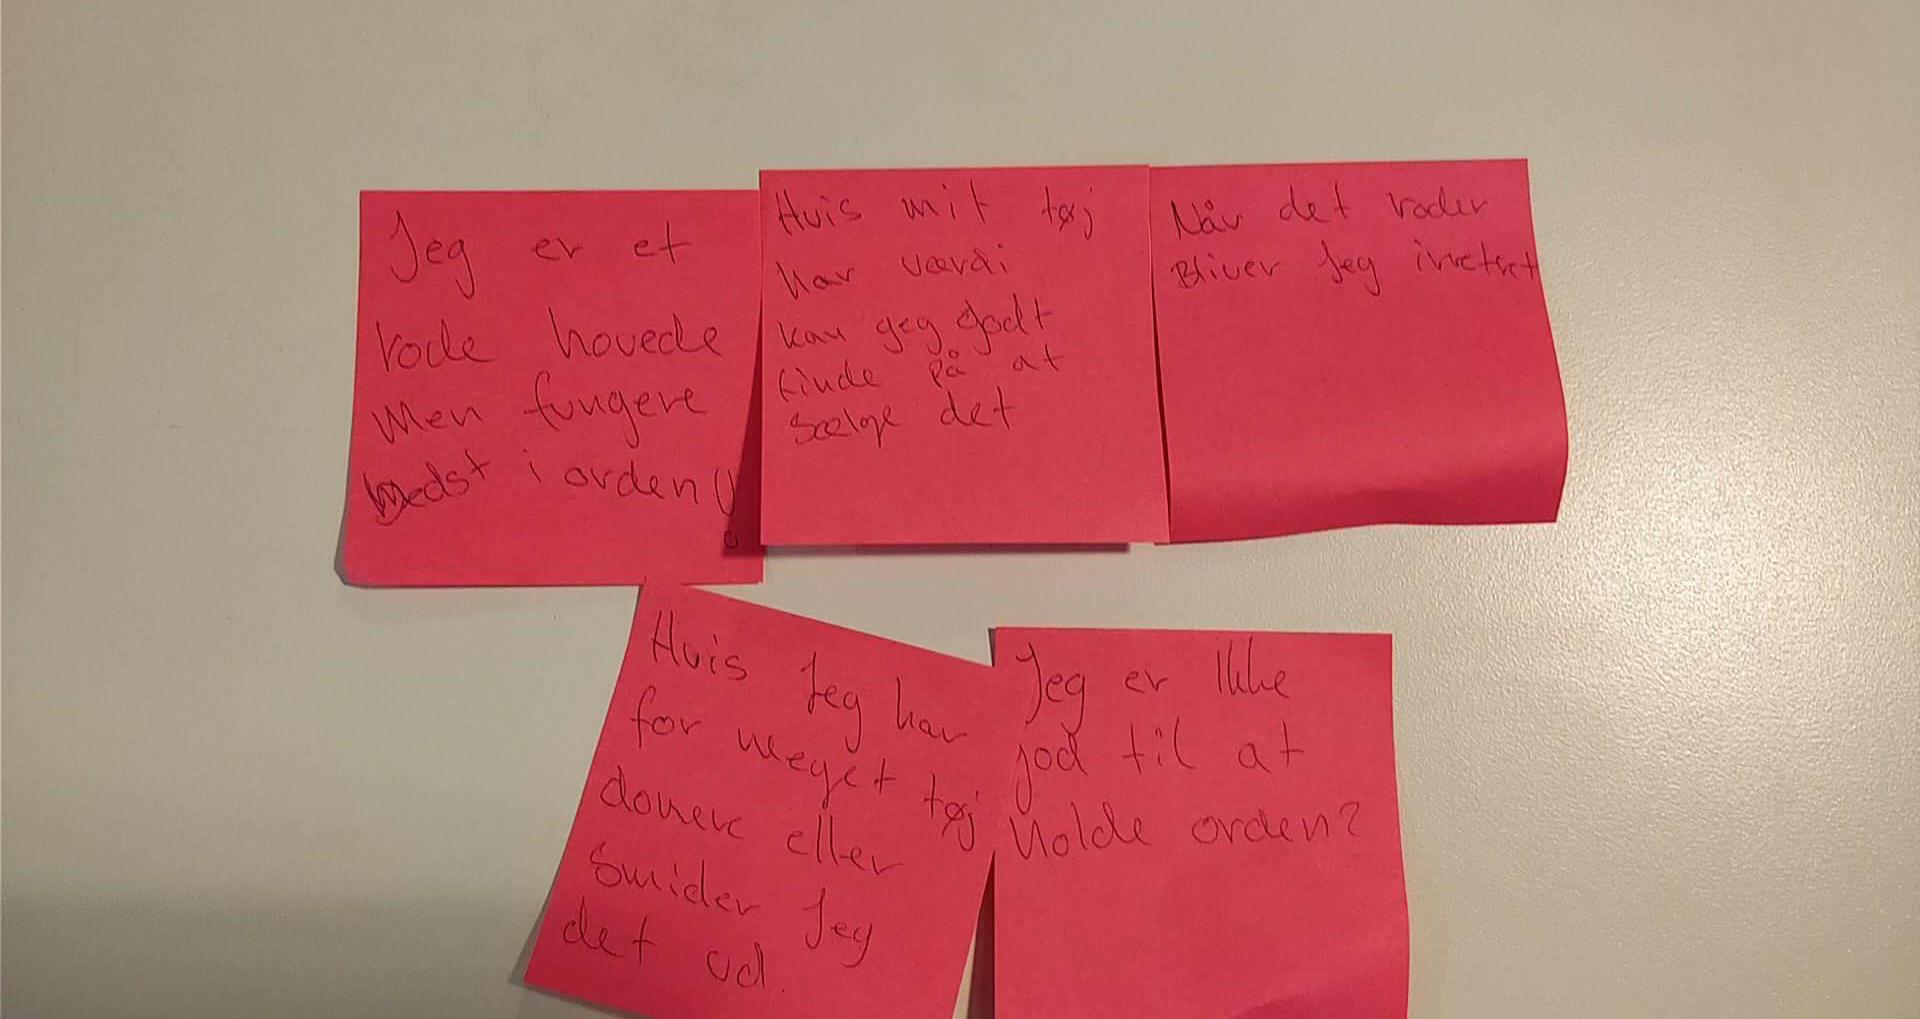 Jeg er et
rode hovede
Men fungere
bedst i orden
Hvis mit tøj
har værdi
kan geg godt
finde på at
sælge det
Når det roder
Bliver Jeg irretret
Hvis Jeg har
for meget tøj
donere eller
smider Jeg
det ud.
Jeg er Ikke
god til at
holde orden?